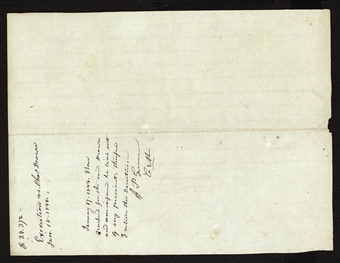 $ 24.37½
Execution vs. Chas Drown
Jan. 15 1844.
January 27. 1844. I have
searched for the said Drown
and am informed he lives out
of my precincts, therefore
I return this Execution
J. P.